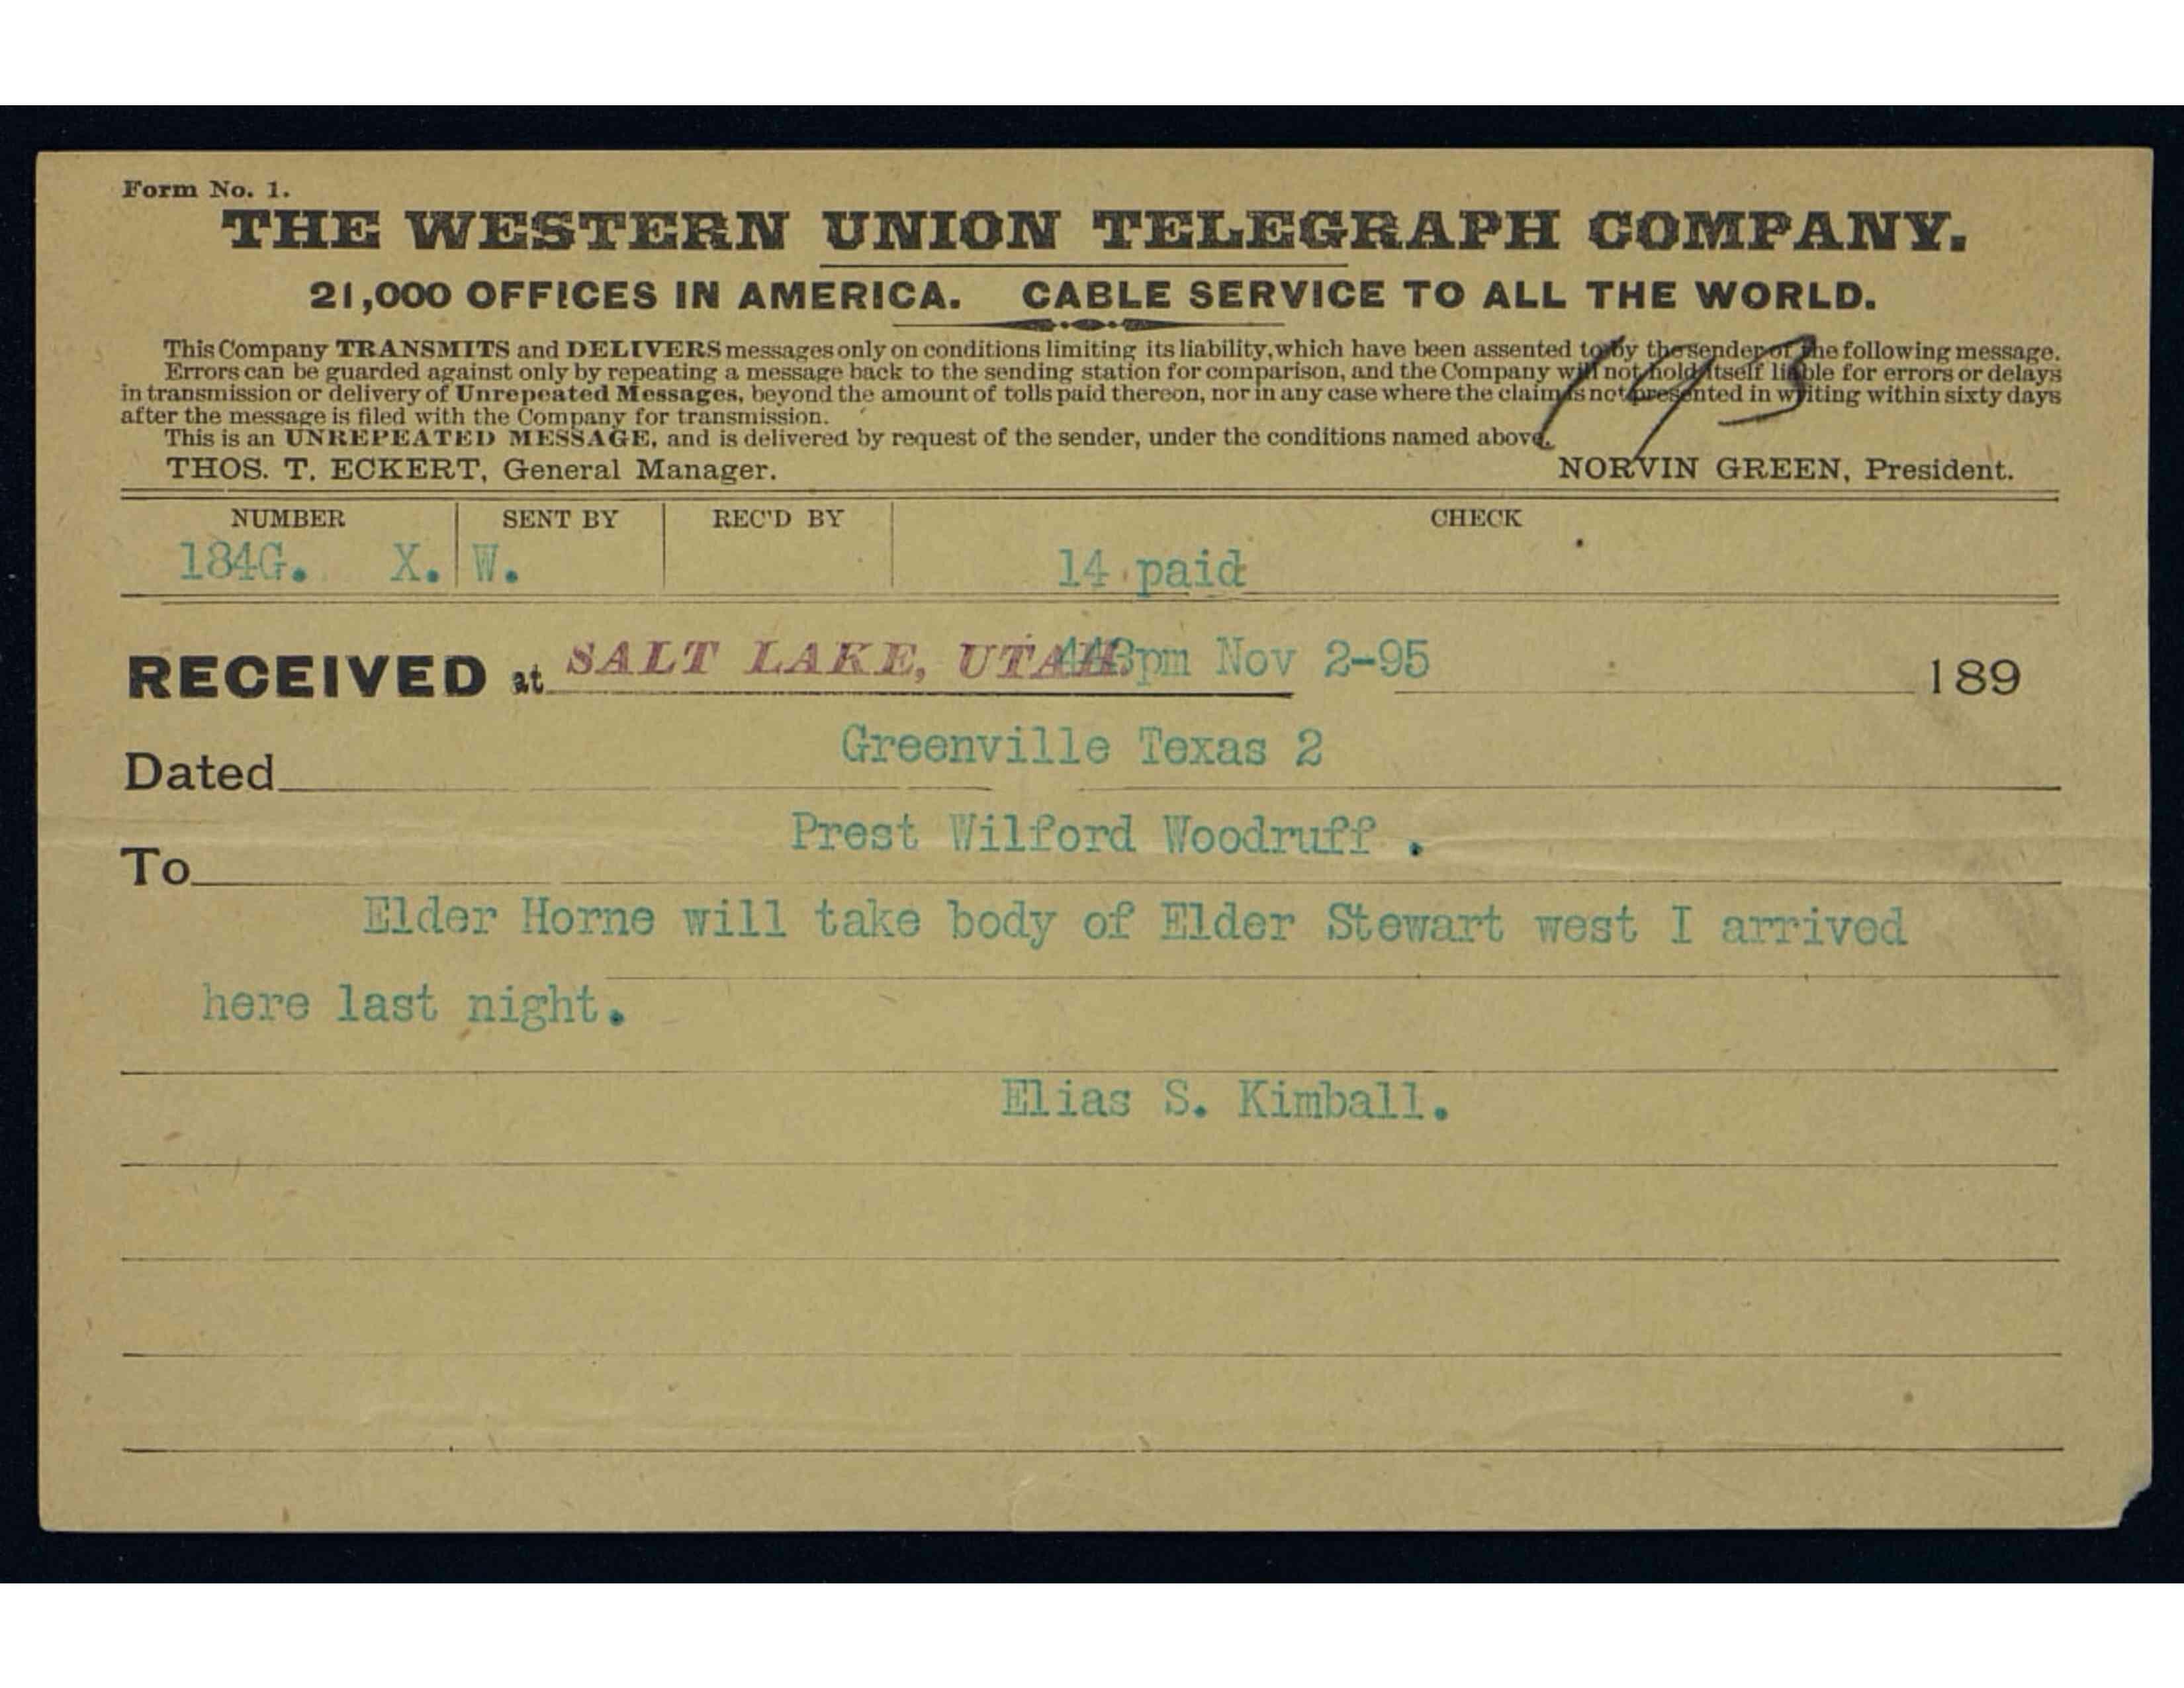 Form No. 1.
THE WESTERN UNION TELEGRAPH COMPANY.
21,000 OFFICES IN AMERICA. CABLE SERVICE TO ALL THE WORLD.
This Company TRANSMITS and DELIVERS messages only on conditions limiting its liability, which have been assented to by the sender of the following message.
Errors can be guarded against only by repeating a message back to the sending station for comparison, and the Company will not hold itself liable for errors or delays
in transmission or delivery of Unrepeated Messages, beyond the amount of tolls paid thereon, nor in any case where the claim is not presented in writing within sixty days
after the message is filed with the Company for transmission.
This is an UNREPEATED MESSAGE, and is delivered by request of the sender, under the conditions named above.
THOS. T. ECKERT, General Manager. NORVIN GREEN, President.
NUMBER SENT BY REC'D BY CHECK
184G. X. W. 14 paid
RECEIVED at SALT LAKE, UTAH pm Nov 2-95 189
Dated Greenville Texas 2
To Prest Wilford Woodruff .
Elder Horne will take body of Elder Stewart west I arrived
here last night.
Elias S. Kimball.